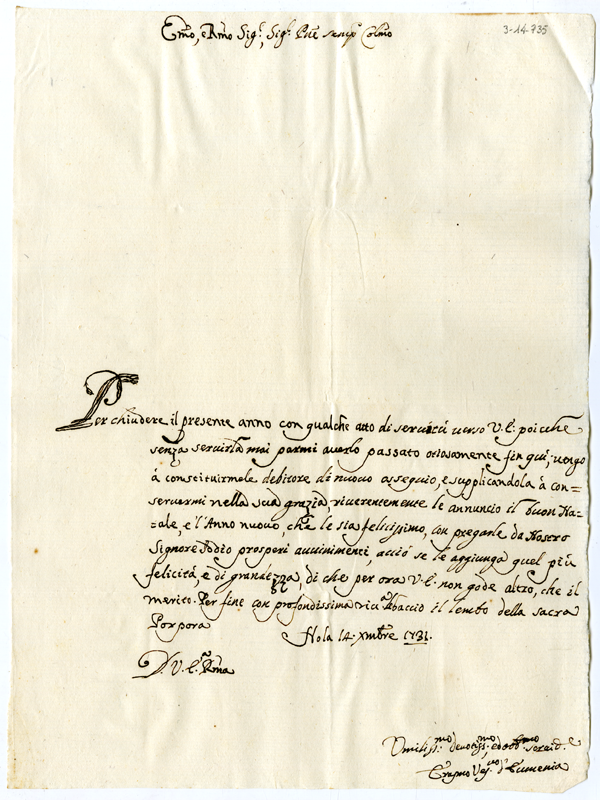 Emo, e Rmo Sig.r, Sig.r Pne semp.e Colmo
3-14-735
Per chiudere il presente anno con qualche atto di servitù verso V. E. poiche
senza servirla mai parmi averlo passato oziosamente fin quì; vengo
à constituirmele debitore di nuovo ossequio, e supplicandola à con=
servarmi nella sua grazia, riverentemente le annuncio il buon Na=
=ale, e l'Anno nuovo, che le sia felicissimo, con pregarle da Nostro
Signore Iddio prosperi avvinimenti, acciò se le aggiunga quel più
felicità, e di grandezza, di che per ora V. E. non gode altro, che il
merito. Per fine con profondissima riv.a Abaccio il lembo della sacra
Porpora
Nola 14. Xmbre 1731.
D. V. E. Rma
Umiliss.mo devotiss.mo ed obb.mo servid.e
Vesc.vo d'Eumenia